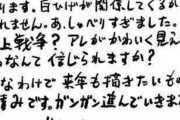 ります。白ひげが関係してくるか
れません。あ、しゃべりすぎました。
上戦争? アレがかわいく見え
なんて信じられますか?
なわけで来年も描きたいもの
積みです。ガンガン進んでいきま